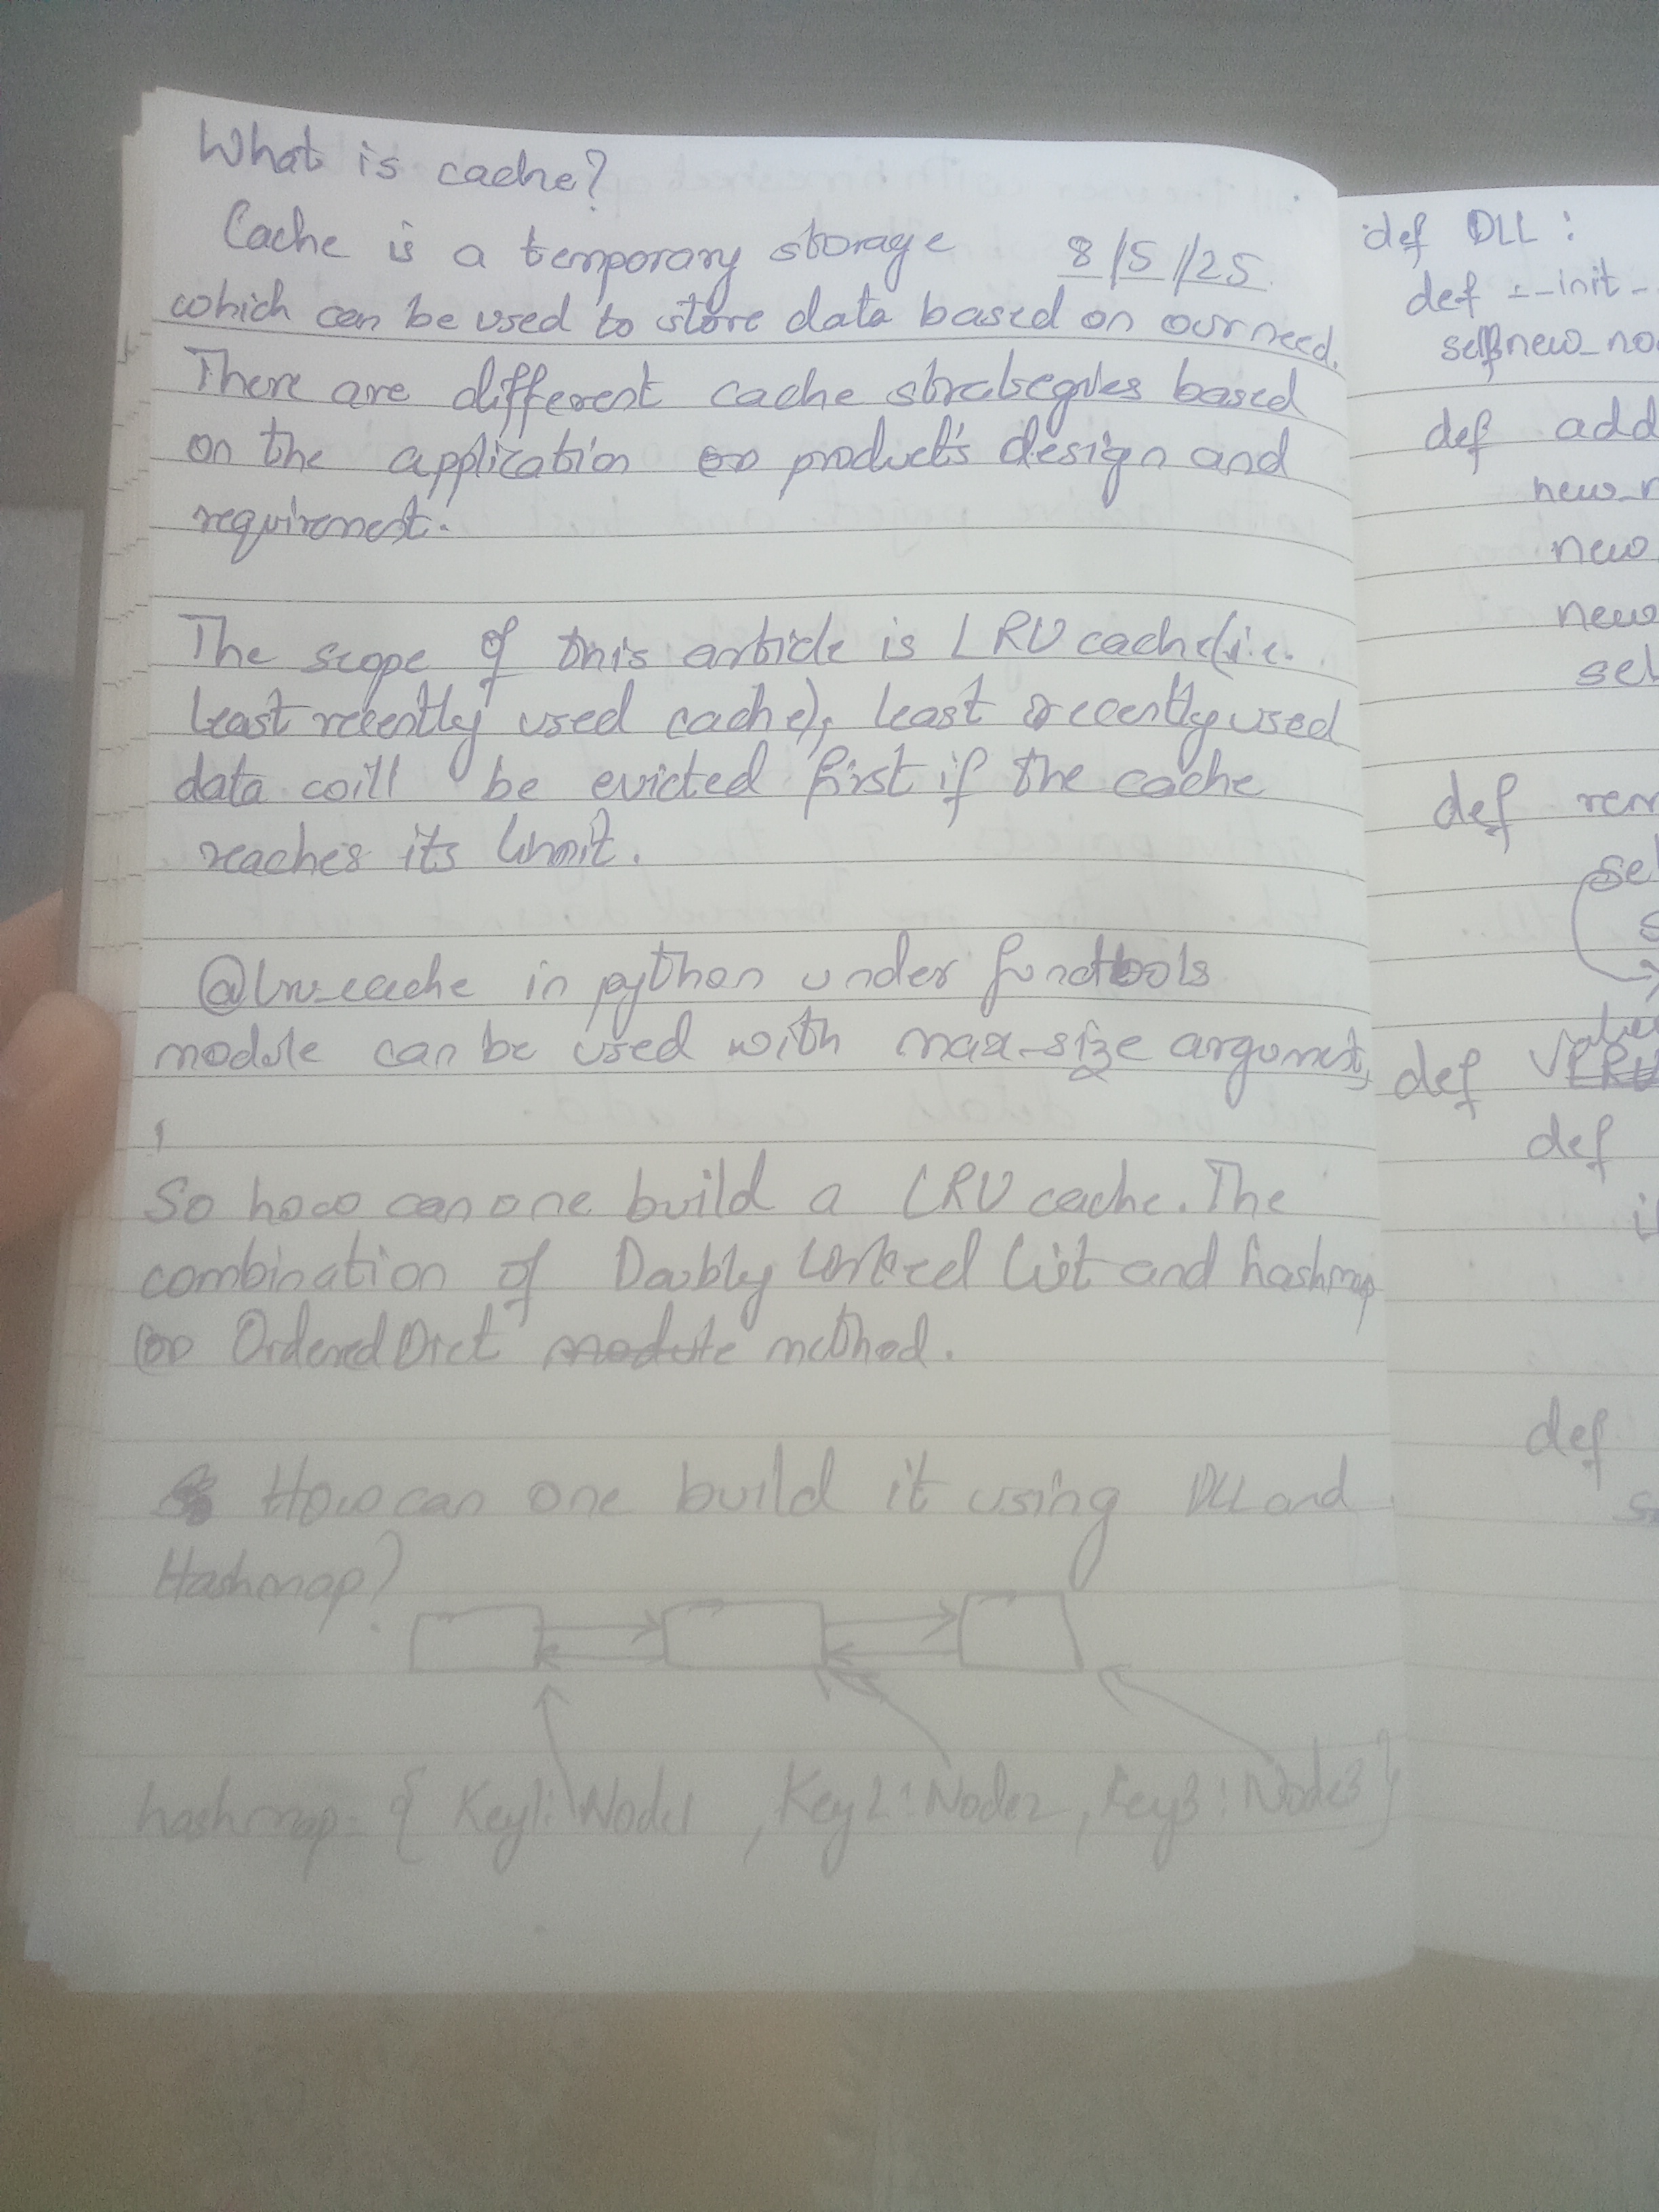 What is cache?
Cache is a temporary storage 8/5/25
which can be used to store data based on our need.
There are different cache strategies based
on the application or product's design and
requirement.
The scope of this article is LRU cache(i.e.
least recently used cache), least recently used
data will be evicted first if the cache
reaches its limit.
@lru_cache in python under functools
module can be used with max_size argument,
So how can one build a LRU cache. The
combination of Doubly linked list and hashmap
(or OrderedDict module method.
How can one build it using DLL and
Hashmap?
hashmap = { Key1: Node1 , Key2: Node2 , Key3: Node3 }
def DLL:
def __init_
self.new_no
def add
new_n
new
new
sel
def rem
sel
s
def
def
def